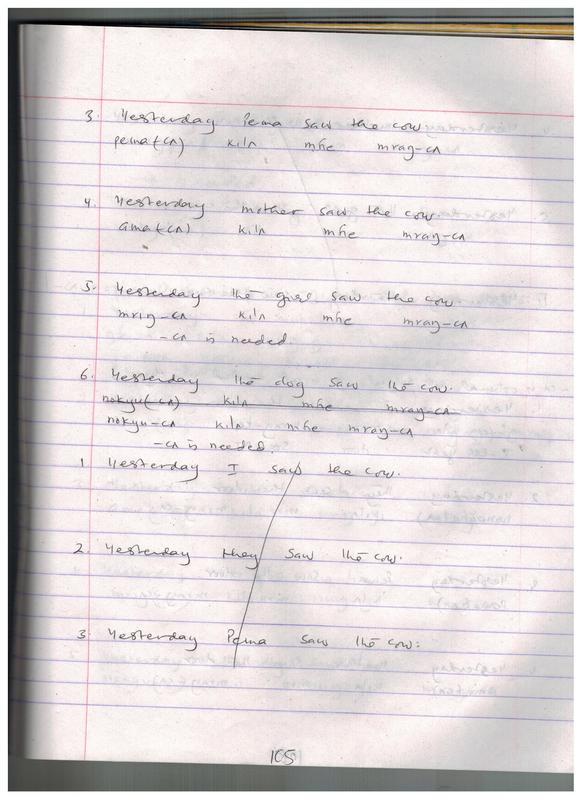 3. Yesterday Pema saw the cow.
pema(-cʌ) kilʌ mɦe mraŋ-cʌ
4. Yesterday mother saw the cow.
ama(-cʌ) kilʌ mɦe mraŋ-cʌ
5. Yesterday the girl saw the cow.
mriŋ-cʌ kilʌ mɦe mraŋ-cʌ
-cʌ is needed
6. Yesterday the dog saw the cow.
nokyu(-cʌ) kilʌ mɦe mraŋ-cʌ
nokyu-cʌ kilʌ mɦe mraŋ-cʌ
-cʌ is needed.
1. Yesterday I saw the cow.
2. Yesterday they saw the cow.
3. Yesterday Pema saw the cow:
105